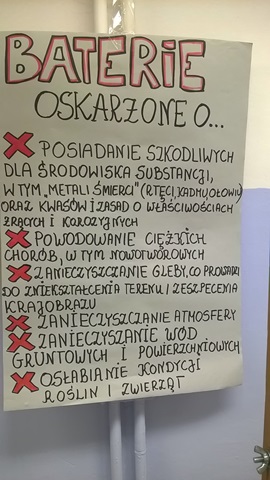 BATERIE
OSKARŻONE O...
POSIADANIE SZKODLIWYCH
DLA ŚRODOWISKA SUBSTANCJI,
W TYM „METALI ŚMIERCI" (RTĘCI, KADMU, OŁOWIU)
ORAZ KWASÓW I ZASAD O WŁAŚCIWOŚCIACH
ŻRĄCYCH I KOROZYJNYCH
POWODOWANIE CIĘŻKICH
CHORÓB, W TYM NOWOTWOROWYCH
ZANIECZYSZCZANIE GLEBY, CO PROWADZI
DO ZNIEKSZTAŁCENIA TERENU I ZESZPECENIA
KRAJOBRAZU
ZANIECZYSZCZANIE ATMOSFERY
ZANIECZYSZANIE WÓD
GRUNTOWYCH I POWIERZCHNIOWYCH
OSŁABIANIE KONDYCJI
ROŚLIN I ZWIERZĄT